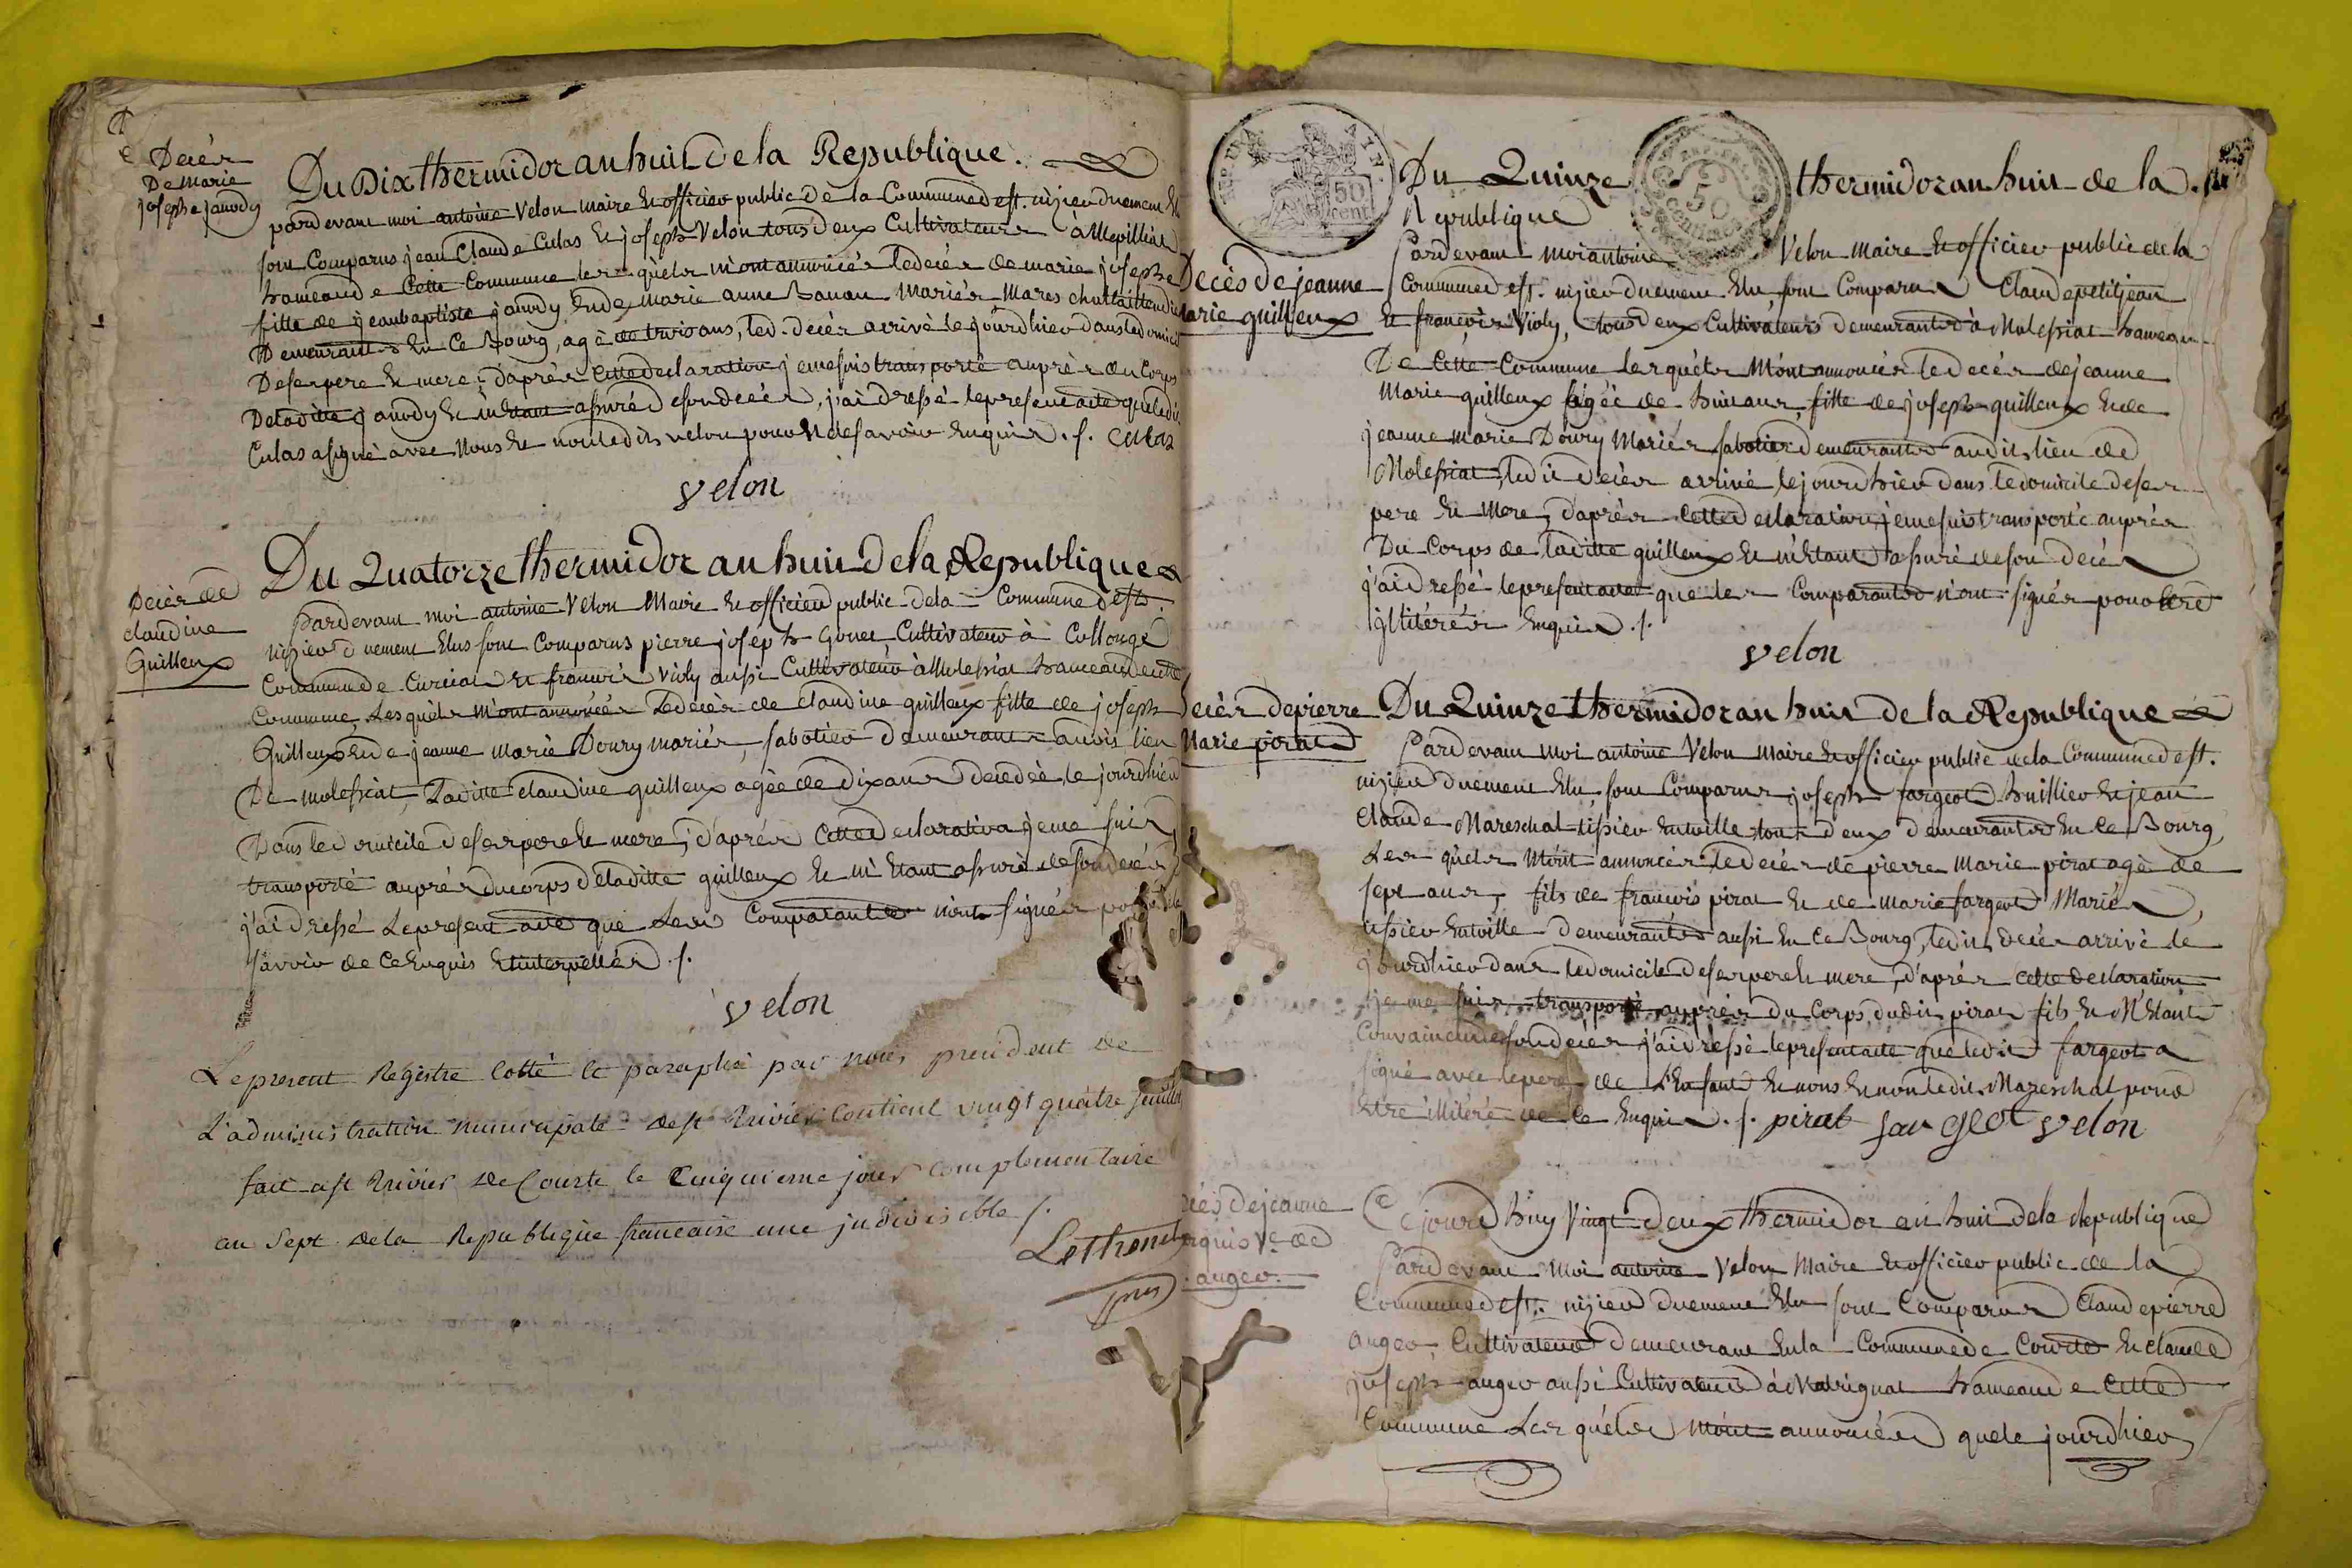 Decès
De Marie
josephe janody
Du Dix thermidor an huit de la Republique.
pardevant moi antoine Velon maire & officier public de la Commune de st. nizier duement Elu
sont Comparus jean Claude Culas & joseph Velon tous deux Cultivateurs à
hameau de Cette Commune lesquels m'ont annoncés le decès de marie josephe
fille de jean baptiste janody & de marie anne mariés
Demeurants En Ce Bourg, agé de trois ans, led. decès arrivé le jourdhier dans le domicile
De ses pere & mere; d'après cette declaration je me suis transporté auprès du Corps
De laditte janody & m'Etant assuré de son decès, j'ai dressé le present acte que ledit
Culas a signé avec Nous & non ledit velon pour ne savoir Enquis ./. culas
velon
Decès de
claudine
Guilleux
Du Quatorze thermidor an huit de la Republique
Pardevant moi antoine Velon Maire & officier public de la Commune de st.
nizier duement Elus sont Comparus pierre joseph Gonet Cultivateur à Collonge
Commune de Curciat & francois Violy aussi Cultivateur à Molessiat hameau de cette
Commune, Lesquels m'ont annoncés Le decès de claudine guilleux fille de joseph
Guilleux & de jeanne marie Doury mariés, sabotier demeurant audit lieu
De molessiat, Laditte claudine guilleux agée de Dix ans decedée le jourdhier
Dans le domicile de ses pere & mere; d'après Cette declaration je me suis
transporté auprès du corps de laditte guilleux & m'Etant assuré de son decès
j'ai dressé Le present acte que Les Comparants n'ont signés pour ne le
savoir de Ce Enquis & interpellés ./.
velon
Le present Registre Cotté et paraphé par nous president de
L'administration municipale de st trivier Contient vingt quatre feuillets
fait a st trivier de Courte le Cinquieme jour complementaire
an Sept de la Republique francaise une indivisible ./.
REP. FRA.
50
cent
50
centimes
Du Quinze thermidor an huit de la
Republique
Decès de jeanne
marie guilleux
Pardevant moi antoine Velon maire & officier public de la
Commune de st. nizier duement Elu sont Comparus Claude petitjean
& francois Violy, tous deux Cultivateurs demeurants à Molessiat hameau
De Cette Commune lesquels M'ont annoncés le decès de jeanne
Marie guilleux agée de huit ans, fille de joseph guilleux & de
jeanne marie Doury Mariés sabotier demeurants audit lieu de
Molessiat, ledit decès arrivé le jourdhier dans le domicile de ses
pere & Mere; d'après Cette declaration je me suis transporté auprès
Du Corps de laditte guilleux & m'Etant assuré de son decès
j'ai dressé le present acte que les Comparants n'ont signés pour être
illitérés Enquis ./.
velon
Decès de pierre
Marie pirat
Du Quinze thermidor an huit de la Republique
Pardevant moi antoine Velon maire & officier public de la Commune de st.
nizier duement Elu, sont Comparus joseph fargeot huillier & jean
Claude Mareschal tissier En toille tous deux demeurants En Ce Bourg,
Lesquels M'ont annoncés le decès de pierre marie pirat agé de
sept ans, fils de francois pirat & de marie fargeot Mariés,
tissier En toille demeurants aussi En Ce Bourg, ledit decès arrivé le
jourdhier dans le domicile de ses pere & mere, d'après cette declaration
je me suis transporté auprès du Corps dudit pirat fils & M'Etant
Convaincu de son decès j'ai dressé le present acte que ledit fargeot a
signé avec le pere de L'Enfant & nous & non ledit Mareschal pour
être illitéré de Ce Enquis ./. pirat fargeot velon
decès de jeanne
ve. de
auger
Ce jourdhuy Vingt deux thermidor an huit de la Republique
Pardevant Moi antoine Velon Maire & officier public de la
Commune de st. nizier duement Elu sont Comparus Claude pierre
auger, Cultivateur demeurant En la Commune de Courte & claude
joseph auger aussi Cultivateur à Matrignat hameau de Cette
Commune Lesquels M'ont annoncés que le jourdhier